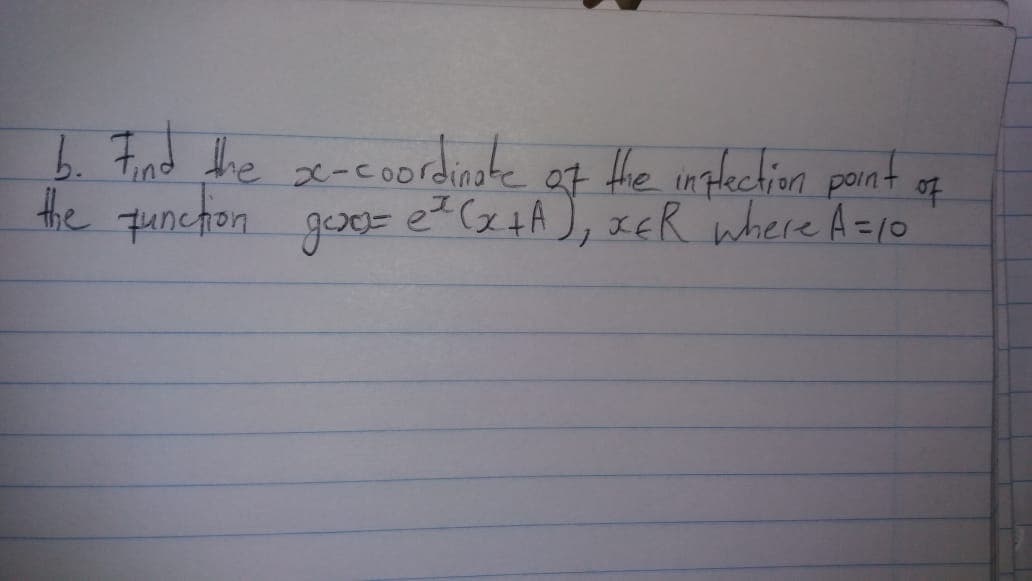 b. Find the x-coordinate of the inflection point of
the function g(x)= eˣ(x+A), x∈R where A=10